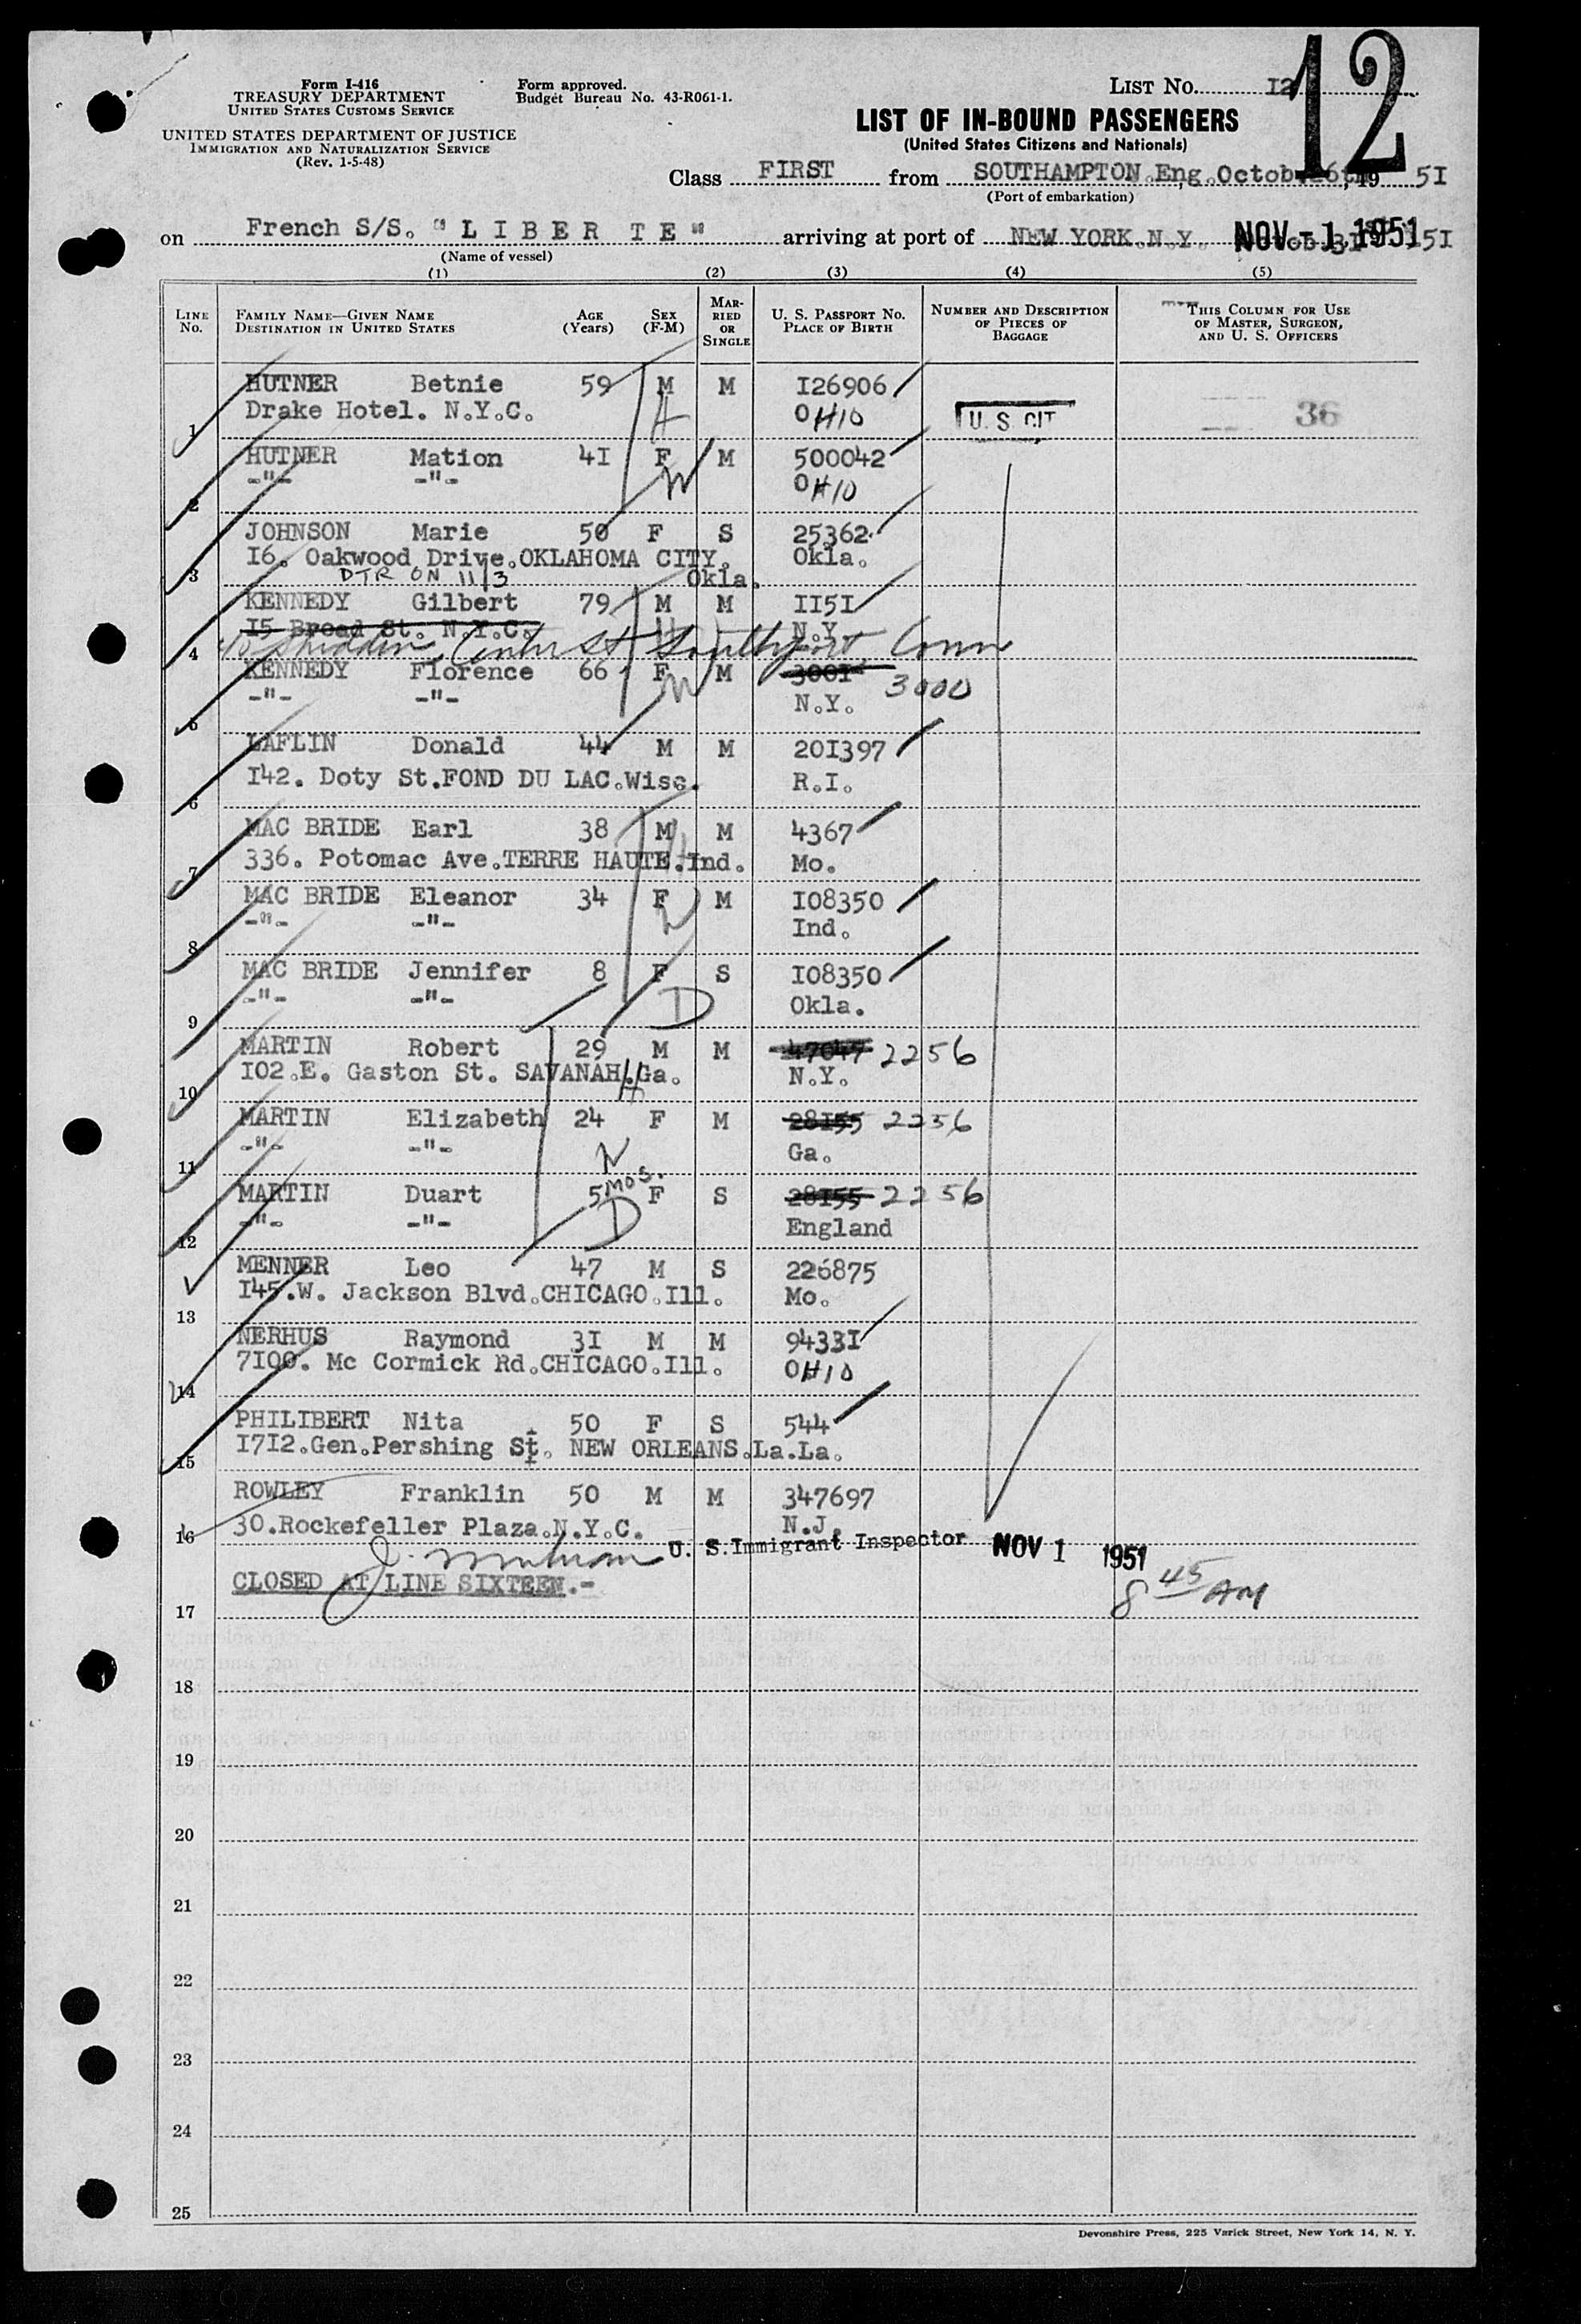 Form I-416
TREASURY DEPARTMENT
UNITED STATES CUSTOMS SERVICE
UNITED STATES DEPARTMENT OF JUSTICE
IMMIGRATION AND NATURALIZATION SERVICE
(Rev. 1-5-48)
Form approved.
Budget Bureau No. 43-R061-1.
LIST NO. 12
12
LIST OF IN-BOUND PASSENGERS
(United States Citizens and Nationals)
Class FIRST from SOUTHAMPTON.Eng.October 26th, 19 51
(Port of embarkation)
on French S/S. "L I B E R T E" arriving at port of NEW YORK.N.Y. NOV - 1 1951 51
(Name of vessel)
(1) (2) (3) (4) (5)
LINE No. FAMILY NAME—GIVEN NAME DESTINATION IN UNITED STATES AGE (Years) SEX (F-M) MARRIED OR SINGLE U. S. PASSPORT NO. PLACE OF BIRTH NUMBER AND DESCRIPTION OF PIECES OF BAGGAGE THIS COLUMN FOR USE OF MASTER, SURGEON, AND U. S. OFFICERS
HUTNER Betnie 59 M M I26906
1 Drake Hotel. N.Y.C. H OHIO U. S. CIT 36
HUTNER Mation 4I F M 500042
2 -"- -"- W OHIO
JOHNSON Marie 50 F S 25362
3 I6. Oakwood Drive.OKLAHOMA CITY. Okla. Okla.
DTR ON 11/3
KENNEDY Gilbert 79 M M II5I
4 I5 Broad St. N.Y.C. H N.Y.
Center St Southport Conn
KENNEDY Florence 66 F M 300I 3000
5 -"- -"- W N.Y.
LAFLIN Donald 44 M M 20I397
6 I42. Doty St.FOND DU LAC.Wisc. R.I.
MAC BRIDE Earl 38 M M 4367
7 336. Potomac Ave.TERRE HAUTE.Ind. H Mo.
MAC BRIDE Eleanor 34 F M I08350
8 -"- -"- W Ind.
MAC BRIDE Jennifer 8 F S I08350
9 -"- -"- D Okla.
MARTIN Robert 29 M M 47047 2256
10 I02.E. Gaston St. SAVANAH.Ga. H N.Y.
MARTIN Elizabeth 24 F M 28I55 2256
11 -"- -"- W Ga.
MARTIN Duart 5 mos. F S 28I55 2256
12 -"- -"- D England
MENNER Leo 47 M S 226875
13 I45.W. Jackson Blvd.CHICAGO.Ill. Mo.
NERHUS Raymond 3I M M 9433I
14 7I00. Mc Cormick Rd.CHICAGO.Ill. OHIO
PHILIBERT Nita 50 F S 544
15 I7I2.Gen.Pershing St. NEW ORLEANS.La.La.
ROWLEY Franklin 50 M M 347697
16 30.Rockefeller Plaza.N.Y.C. N.J.
U. S. Immigrant Inspector NOV 1 1951
CLOSED AT LINE SIXTEEN.- 8 45 AM
17
18
19
20
21
22
23
24
25
Devonshire Press, 225 Varick Street, New York 14, N. Y.